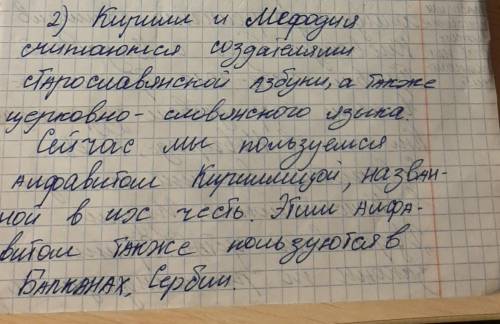 2) Кирилл и Мефодия
считаются создателями
старославянской азбуки, а также
церковно-словянского языка.
Сейчас мы пользуемся
алфавитом Кириллицой, назван-
ной в их честь. Этим алфа-
витом также пользуются в
Балканах, Сербии.